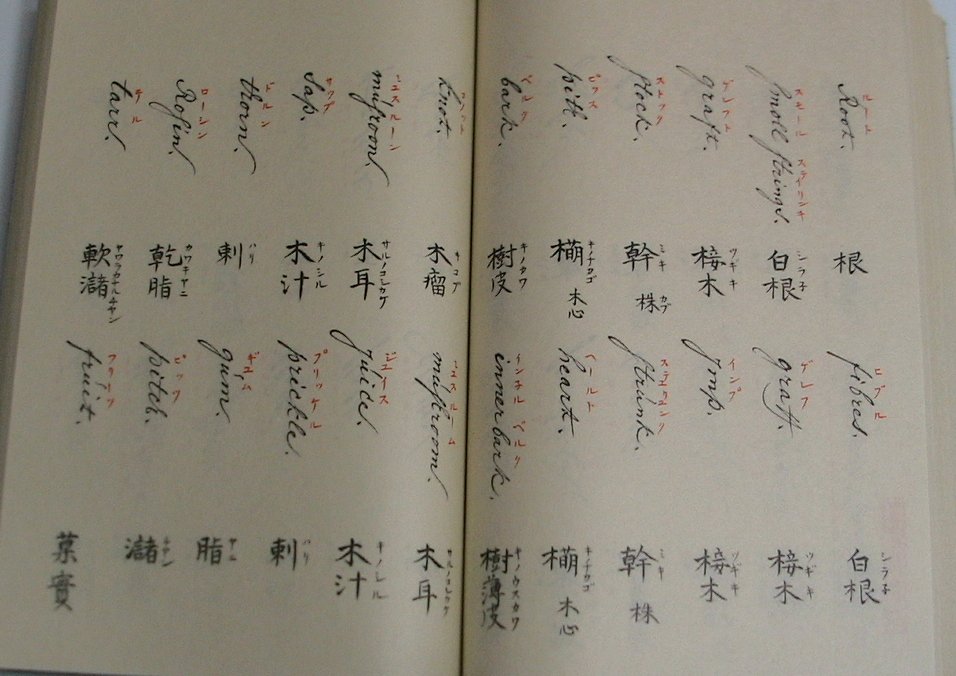 ルート
Root. 根
ヒブル シラ子
fibres. 白根
スモール ステイリンキ シラ子
ſmall ſtrings. 白根
ゲレフ ツギキ
graff. 椄木
ゲレフト ツギキ
graft. 椄木
インプ ツギキ
Jmp. 椄木
ストック ミキ カブ
ſtock. 幹 株
ミキ
ſtrunk. 幹 株
ピッス キノナカゴ
pith. 橗 木心
ヘールト キノナカゴ
heart. 橗 木心
バルク キノカワ
bark. 樹皮
インネル バルク キノウスカワ
inner bark. 樹薄皮
コノット キコブ
knot. 木瘤
ミュスルーム サルノコシカケ
muſtroom. 木耳
ミュスルーン サルノコシカケ
muſroon. 木耳
ジュイース キノシル
Juice. 木汁
サップ キノシル
Sap. 木汁
プリッケル ハリ
prickle. 刺
トルン ハリ
thorn. 刺
ギュム ヤニ
gum. 脂
ローシン カワキヤニ
Roſin. 乾脂
ピッツ チヤン
pitch. 瀦
テール ヤワラカナルチヤン
tarr. 軟瀦
fruit. 菓實